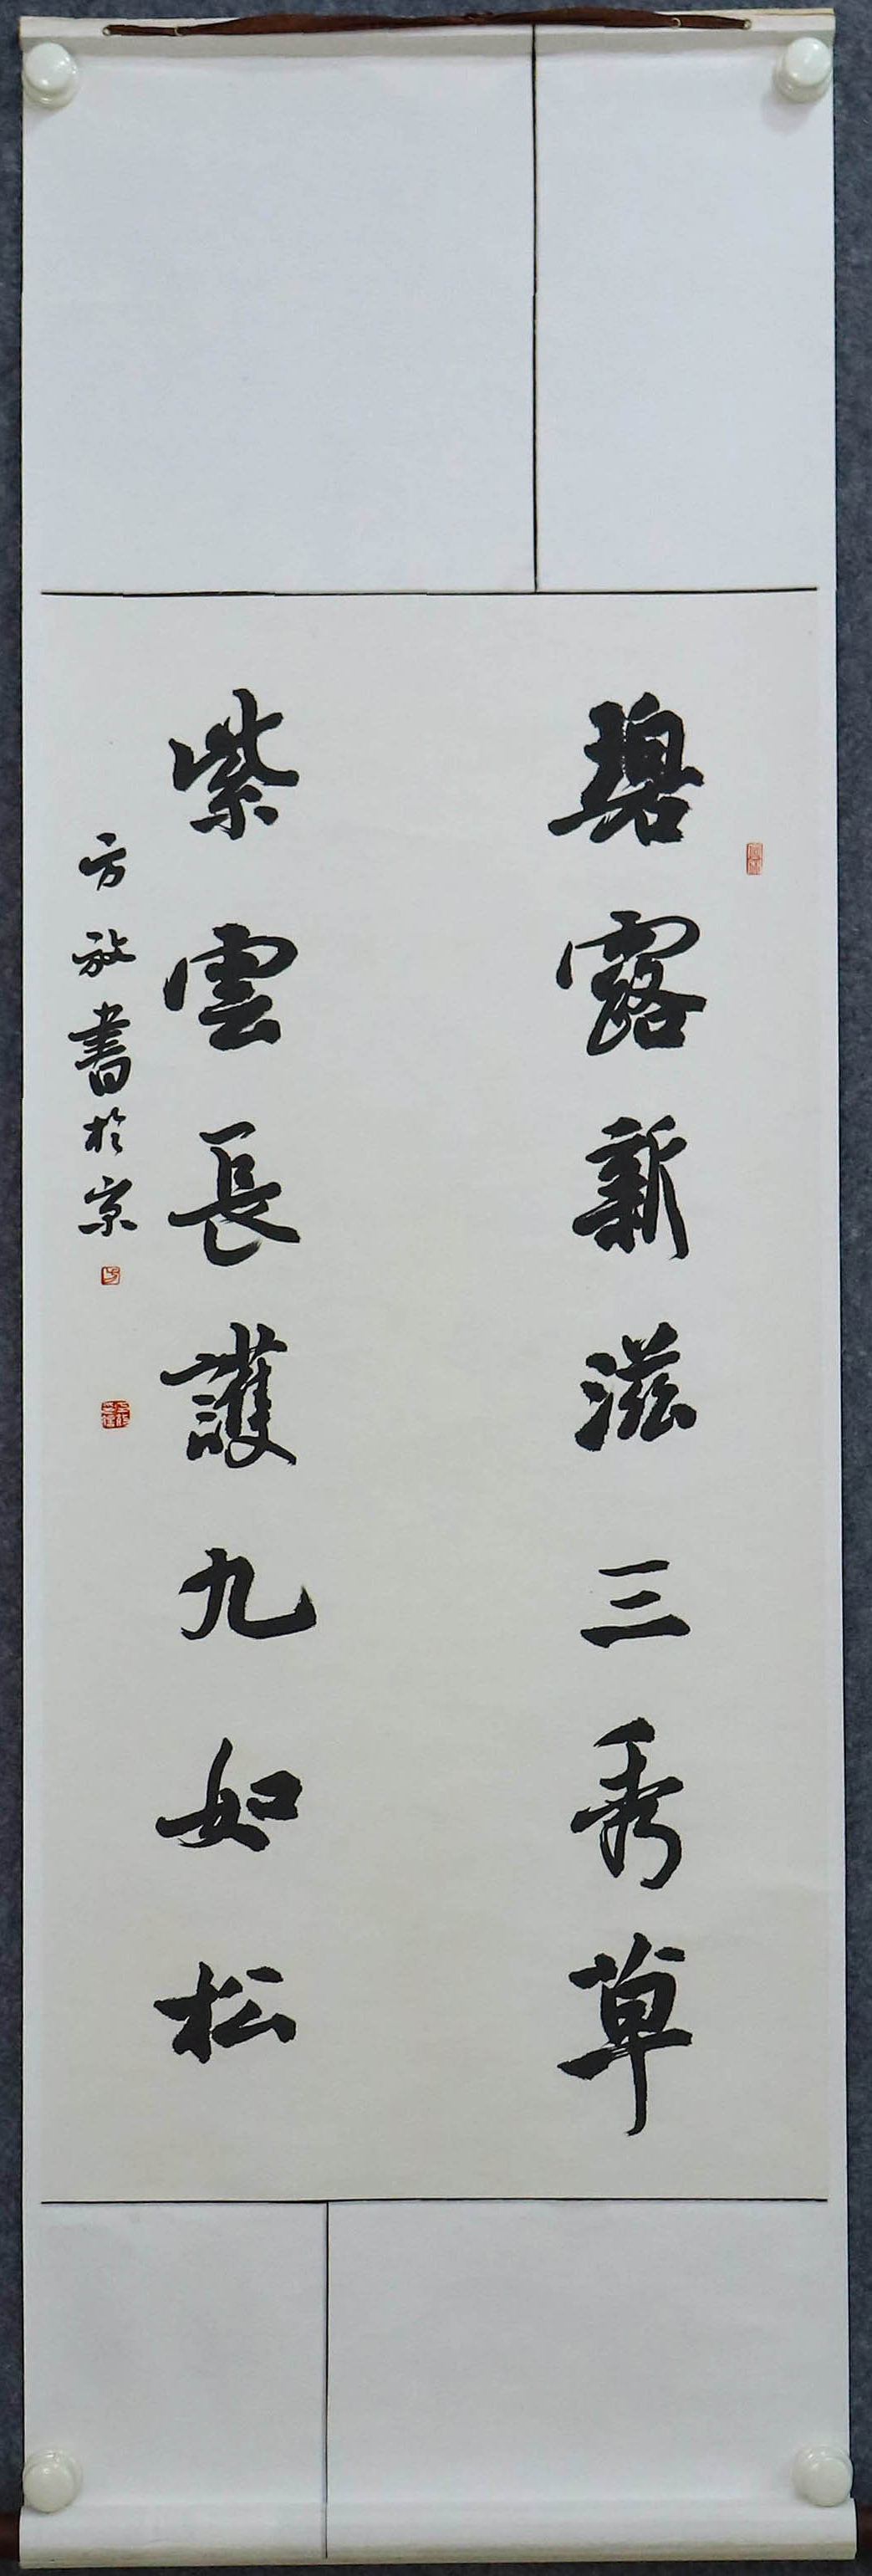 碧露新滋三秀草
紫雲長護九如松
方放書於京